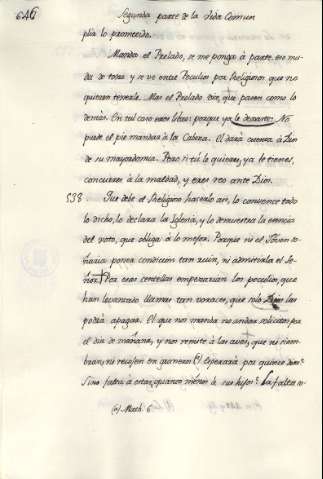 646
Segunda parte de la Vida Comun
plia lo prometido.
Manda el Prelado, se ponga à parte, en mo
da de ropa y se ve entre Peculios por Religiosos que no
quieren tenerla. Mas el Prelado dice, que pasen como lo
demàs. En tal caso eres libre: porque ya lo dexaste. No
puede el pie mandar à la Cabeza. El darà cuenta à Dios
de su mayordomia. Pero si tù lo quieres, ya le tienes,
concurres à la maldad, y eres reo ante Dios.
538 Que debe el Religioso hacerlo asi, lo convence todo
lo dicho, lo declara la Iglesia, y lo demuestra la esencia
del voto, que obliga à lo mejor. Porque ni el Joven o
haria poner condicion tan ruin, ni admitirìa el Se
ñor. Por esas centellas empezarian los peculios, que
han levantado llamas tan voraces, que solo Dios las
podrà apagar. El que nos manda no andar solicitos por
el dia de mañana, y nos remite à las aves, que ni siem
bran, ni recojen en graneros (*) esperarà por quince dias?
Sino falta à estas, quanto menos à sus hijos? La falta n
(*) Math. 6.